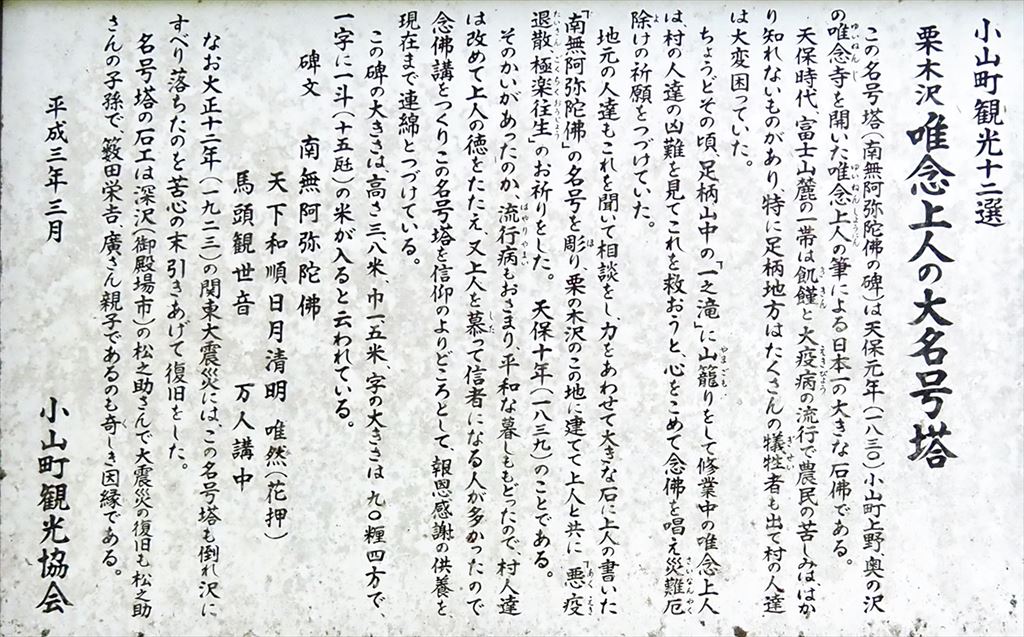 小山町観光十二選
栗木沢 唯念上人の大名号塔
この名号塔(南無阿弥陀佛の碑)は天保元年(一八三〇)小山町上野、奥の沢
の唯念寺を開いた唯念上人の筆による日本一の大きな石佛である。
天保時代、富士山麓の一帯は飢饉と大疫病の流行で農民の苦しみははか
り知れないものがあり、特に足柄地方はたくさんの犠牲者も出て村の人達
は大変困っていた。
ちょうどその頃、足柄山中の「一之滝」に山籠りをして修業中の唯念上人
は、村の人達の凶難を見てこれを救おうと、心をこめて念佛を唱え災難厄
除けの祈願をつづけていた。
地元の人達もこれを聞いて相談をし、力をあわせて大きな石に上人の書いた
「南無阿弥陀佛」の名号を彫り、栗の木沢のこの地に建てて上人と共に「悪疫
退散、極楽往生」のお祈りをした。 天保十年(一八三九)のことである。
そのかいがあったのか、流行病もおさまり、平和な暮しももどったので、村人達
は改めて上人の徳をたたえ、又上人を慕って信者になる人が多かったので
念佛講をつくりこの名号塔を信仰のよりどころとして、報恩感謝の供養を
現在まで連綿とつづけている。
この碑の大きさは高さ三八米、巾一五米、字の大きさは 九〇糎四方で、
一字に一斗(十五瓩)の米が入ると云われている。
碑文 南無阿弥陀佛
天下和順日月清明 唯然(花押)
馬頭観世音 万人講中
なお大正十二年(一九二三)の関東大震災にはこの名号塔も倒れ沢に
すべり落ちたのを苦心の末引きあげて復旧をした。
名号塔の石工は深沢(御殿場市)の松之助さんで大震災の復旧も松之助
さんの子孫で、籔田栄吉、廣さん親子であるのも奇しき因縁である。
平成三年三月
小山町観光協会